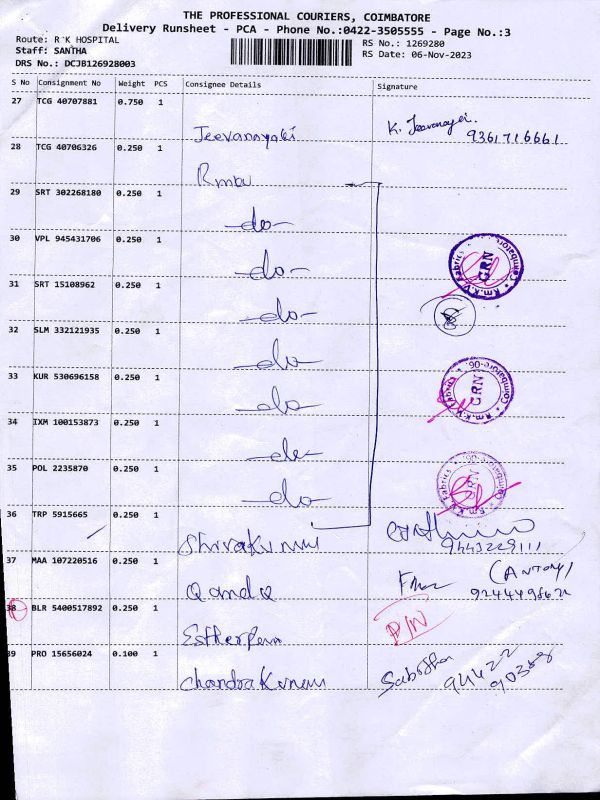 THE PROFESSIONAL COURIERS, COIMBATORE
Delivery Runsheet - PCA - Phone No.:0422-3505555 - Page No.:3
Route: R K HOSPITAL
RS No.: 1269280
Staff: SANTHA
RS Date: 06-Nov-2023
DRS No.: DCJB126928003
S No Consignment No Weight PCS Consignee Details Signature
27 TCG 40707881 0.750 1
Jeevanayaki K. Jeevanayai. 9361716661
28 TCG 40706326 0.250 1
Rmkv
29 SRT 302268180 0.250 1
-do-
30 VPL 945431706 0.250 1
-do-
Rm.K.V Fabrics * Coimbatore GRN
31 SRT 15108962 0.250 1
-do-
32 SLM 332121935 0.250 1
-do-
33 KUR 530696158 0.250 1
-do-
Rm.K.V Fabrics * Coimbatore-06. GRN
34 IXM 100153873 0.250 1
-do-
35 POL 2235870 0.250 1
-do-
Fabrics * Coimbatore-06.
36 TRP 5915665 0.250 1
Shivakumar 9443229111
37 MAA 107220516 0.250 1
(ANTONY)
38 BLR 5400517892 0.250 1
D/N
39 PRO 15656024 0.100 1
94422
90388